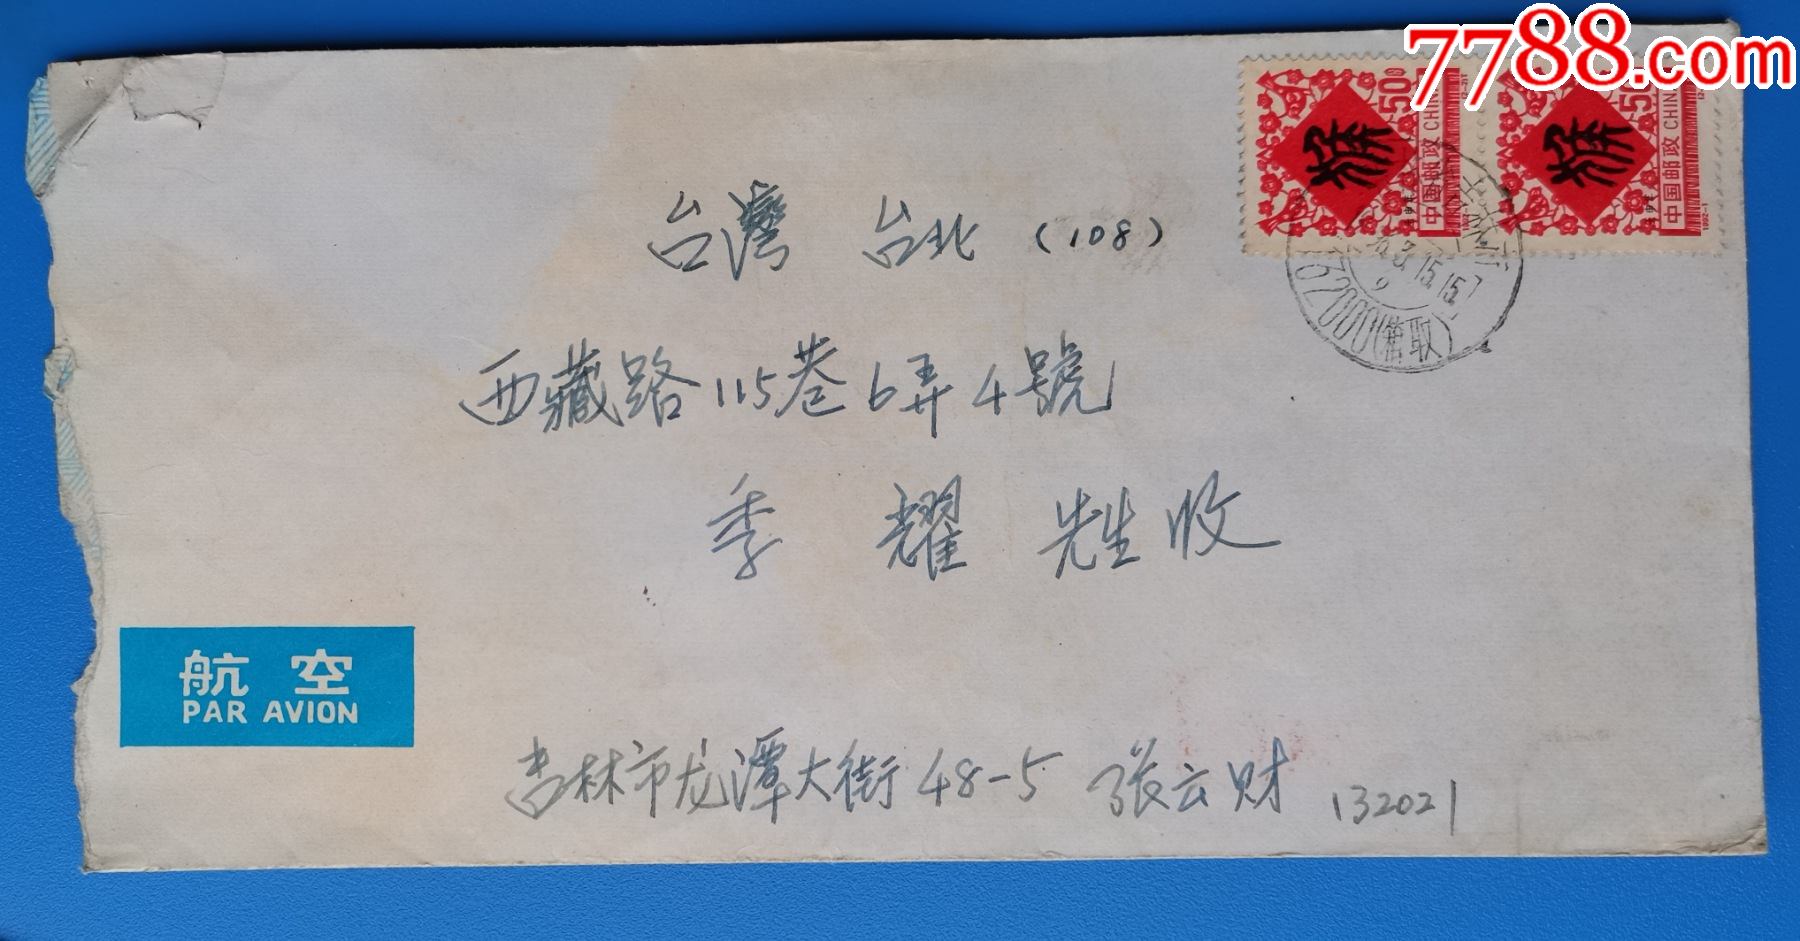 7788.com
50分 中国邮政 CHINA 猴 1992-1
50 中国邮政 CHINA 猴 1992-1
台灣 台北 (108)
62000(箱取)
西藏路115巷6弄4號
季 耀 先生收
航空
PAR AVION
吉林市龙潭大街48-5 张云财 132021